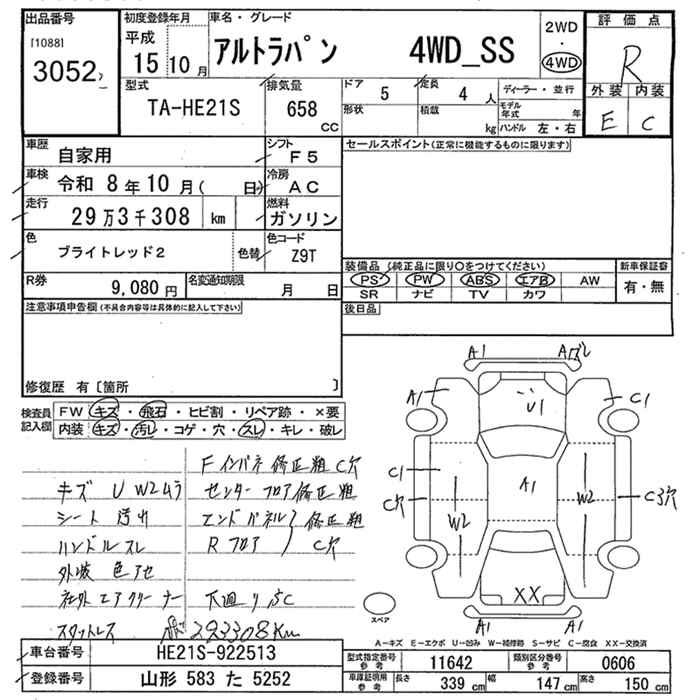 出品番号
[1088]
3052
初度登録年月
平成
15 10 月
車名・グレード
アルトラパン 4WD_SS
2WD
・
4WD
評価点
R
外装 内装
E C
型式
TA-HE21S
排気量
658
cc
ドア
5
定員
4 人
形状
積載
kg
ディーラー・並行
モデル
年式 年
ハンドル 左・右
車歴
自家用
シフト
F5
車検
令和 8年10月( 日)
冷房
AC
走行
29万3千308 km
燃料
ガソリン
色
ブライトレッド2
色替
色コード
Z9T
R券
9,080 円
名変通知期限
月 日
セールスポイント(正常に機能するものに限ります)
装備品 (純正品に限り○をつけてください)
新車保証書
PS PW ABS エアB AW
有・無
SR ナビ TV カワ
後日品
注意事項申告欄(不具合内容等は具体的に記入して下さい)
修復歴 有〔箇所 〕
検査員
記入欄
FW キズ・飛石・ヒビ割・リペア跡・×要
内装 キズ・汚レ・コゲ・穴・スレ・キレ・破レ
Fインパネ修正粗 C穴
キズ U W2ムラ
センターフロア修正粗
シート汚れ
エンドパネル 修正粗
ハンドルスレ
Rフロア C穴
外装 色アセ
社外エアクリーナー
下廻りSC
スタットレス
293308Km
A1
A1
U1
C1
C1
C穴
A1
W2
W2
C3穴
XX
A1
A1
スペア
A-キズ E-エクボ U-凹み W-補修跡 S-サビ C-腐食 XX-交換済
車台番号
HE21S-922513
登録番号
山形 583 た 5252
型式指定番号
参考
11642
類別区分番号
参考
0606
車庫証明用
参考
長さ
339 cm
幅
147 cm
高さ
150 cm